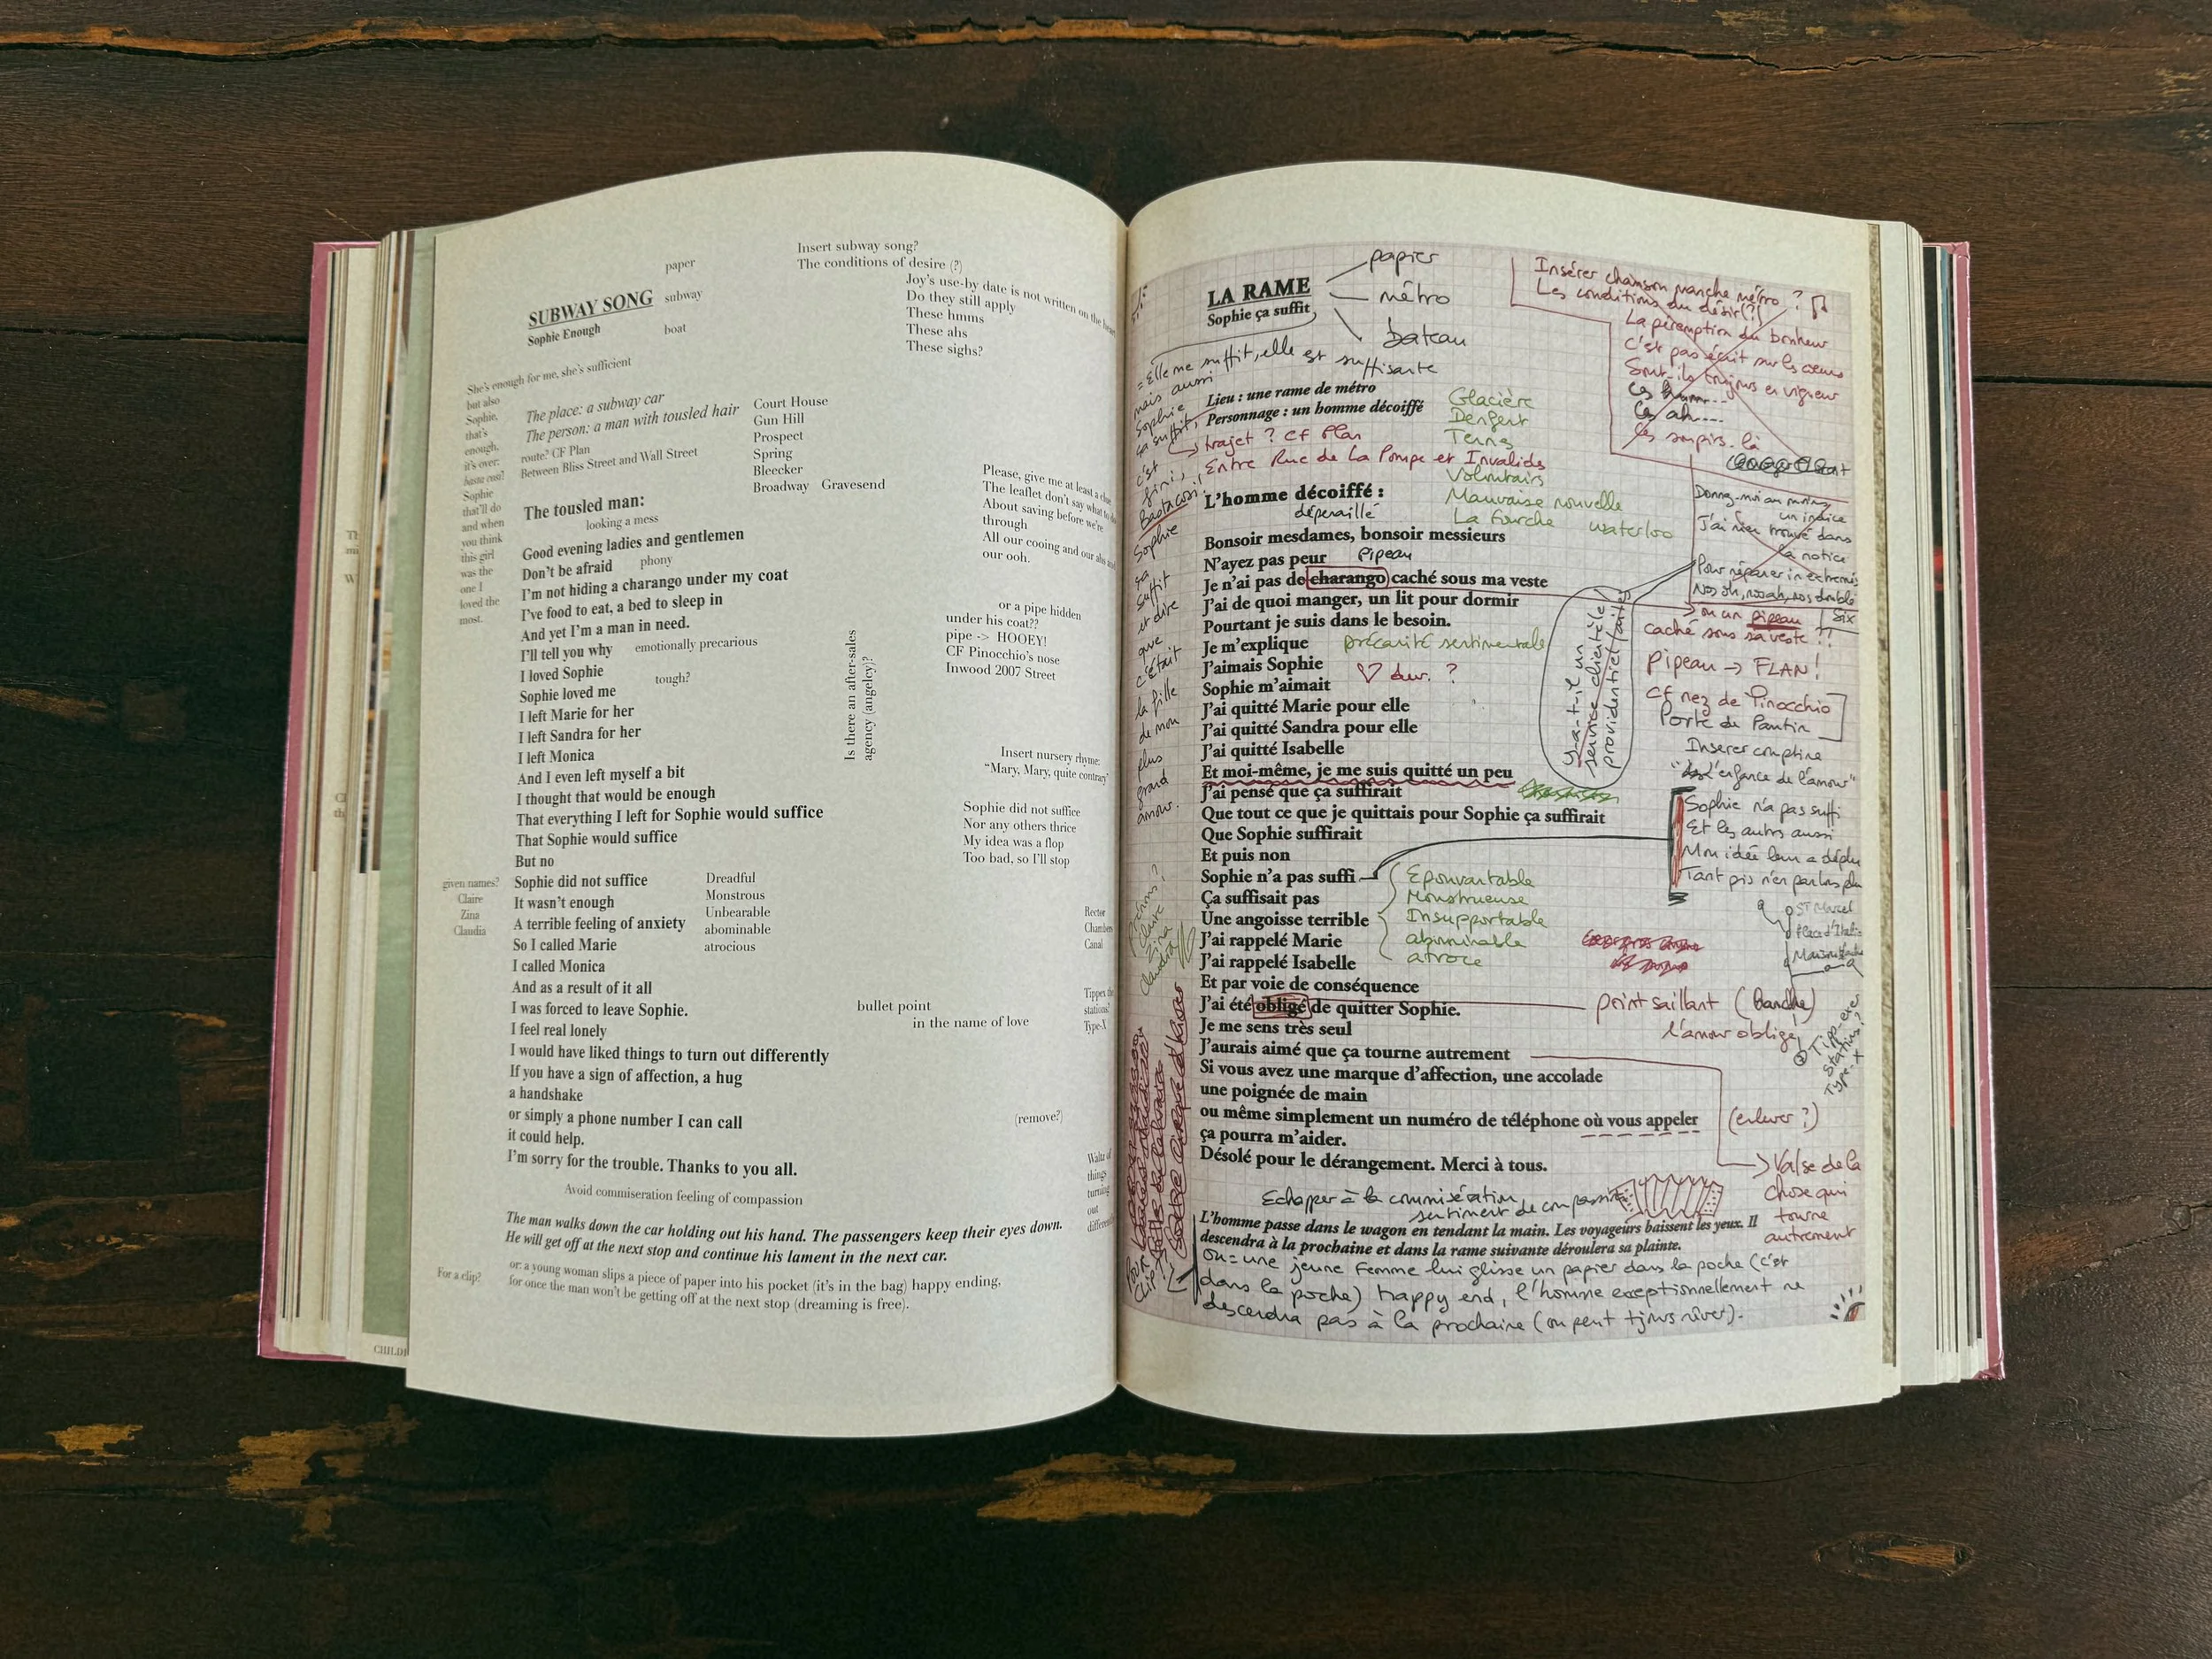 Insert subway song?
The conditions of desire (?)
Joy's use-by date is not written on the hear
Do they still apply
These hmms
These ahs
These sighs?
paper
SUBWAY SONG
subway
Sophie Enough
boat
She's enough for me, she's sufficient
but also
Sophie,
that's
enough,
it's over:
basta cosi!
Sophie
that'll do
and when
you think
this girl
was the
one I
loved the
most.
The place: a subway car
The person: a man with tousled hair
route? CF Plan
Between Bliss Street and Wall Street
Court House
Gun Hill
Prospect
Spring
Bleecker
Broadway Gravesend
Please, give me at least a clue
The leaflet don't say what to do
About saving before we're
through
All our cooing and our ahs and
our ooh.
The tousled man:
looking a mess
Good evening ladies and gentlemen
Don't be afraid
phony
I'm not hiding a charango under my coat
I've food to eat, a bed to sleep in
And yet I'm a man in need.
I'll tell you why
emotionally precarious
I loved Sophie
tough?
Sophie loved me
I left Marie for her
I left Sandra for her
I left Monica
And I even left myself a bit
I thought that would be enough
That everything I left for Sophie would suffice
That Sophie would suffice
But no
Sophie did not suffice
It wasn't enough
A terrible feeling of anxiety
So I called Marie
I called Monica
And as a result of it all
I was forced to leave Sophie.
I feel real lonely
I would have liked things to turn out differently
If you have a sign of affection, a hug
a handshake
or simply a phone number I can call
it could help.
I'm sorry for the trouble. Thanks to you all.
Is there an after-sales
agency (angelcy)?
or a pipe hidden
under his coat??
pipe -> HOOEY!
CF Pinocchio's nose
Inwood 2007 Street
Insert nursery rhyme:
"Mary, Mary, quite contrary"
Sophie did not suffice
Nor any others thrice
My idea was a flop
Too bad, so I'll stop
given names?
Claire
Zina
Claudia
Dreadful
Monstrous
Unbearable
abominable
atrocious
Rector
Chambers
Canal
Tippex the
stations?
Type-X
bullet point
in the name of love
(remove?)
Waltz of
things
turning
out
Avoid commiseration feeling of compassion
The man walks down the car holding out his hand. The passengers keep their eyes down.
He will get off at the next stop and continue his lament in the next car.
For a clip?
or: a young woman slips a piece of paper into his pocket (it's in the bag) happy ending,
for once the man won't be getting off at the next stop (dreaming is free).
CHILD
LA RAME
Sophie ça suffit
papier
métro
bateau
Insérer chanson manche métro ?
Les conditions du désir (?)
La péremption du bonheur
c'est pas écrit sur les cœurs
Sont-ils toujours en vigueur
Ces hmm...
Ces ah...
Ces soupirs là
= Elle me suffit, elle est suffisante
mais aussi
Sophie
ça suffit,
c'est
fini,
Basta cosi!
Sophie
ça
suffit
et dire
que
c'était
la fille
de mon
plus
grand
amour.
Lieu : une rame de métro
Personnage : un homme décoiffé
trajet ? CF Plan
Entre Rue de La Pompe et Invalides
Glacière
Dengert
Ternes
Volontairs
Mauvaise nouvelle
La fourche waterloo
Donnez-moi au moins
un indice
J'ai rien trouvé dans
la notice
Pour réparer in extremis
L'homme décoiffé :
dépenaillé
Bonsoir mesdames, bonsoir messieurs
N'ayez pas peur
Pipeau
Je n'ai pas de charango caché sous ma veste
J'ai de quoi manger, un lit pour dormir
Pourtant je suis dans le besoin.
Je m'explique
précarité sentimentale
J'aimais Sophie
dur. ?
Sophie m'aimait
J'ai quitté Marie pour elle
J'ai quitté Sandra pour elle
J'ai quitté Isabelle
Et moi-même, je me suis quitté un peu
J'ai pensé que ça suffirait
Que tout ce que je quittais pour Sophie ça suffirait
Que Sophie suffirait
Et puis non
Sophie n'a pas suffi
Ça suffisait pas
Une angoisse terrible
J'ai rappelé Marie
J'ai rappelé Isabelle
Et par voie de conséquence
J'ai été obligé de quitter Sophie.
Je me sens très seul
J'aurais aimé que ça tourne autrement
Si vous avez une marque d'affection, une accolade
une poignée de main
ou même simplement un numéro de téléphone où vous appeler
ça pourra m'aider.
Désolé pour le dérangement. Merci à tous.
y-a-t-il un
service clientèle
providentiel
ou un pipeau
caché sous sa veste ??
Six
pipeau → FLAN!
CF nez de Pinocchio
Porte de Pantin
Inserer comptine
"l'enfance de l'amour"
Sophie n'a pas suffi
Et les autres aussi
Mon idée leur a déplu
Tant pis n'en parlons plus
Epouvantable
Monstrueuse
Insupportable
abominable
atroce
Claire
Zina
Claudia
St Marcel
Place d'Italie
point saillant (banche)
l'amour oblige!
Tipp-exer
stations?
Type-X
(enlever ?)
Valse de la
chose qui
tourne
autrement
Echapper à la commisération
sentiment de compassion
L'homme passe dans le wagon en tendant la main. Les voyageurs baissent les yeux. Il
descendra à la prochaine et dans la rame suivante déroulera sa plainte.
ou = une jeune femme lui glisse un papier dans la poche (c'est
dans la poche) happy end, l'homme exceptionnellement ne
descendra pas à la prochaine (on peut tjours rêver).